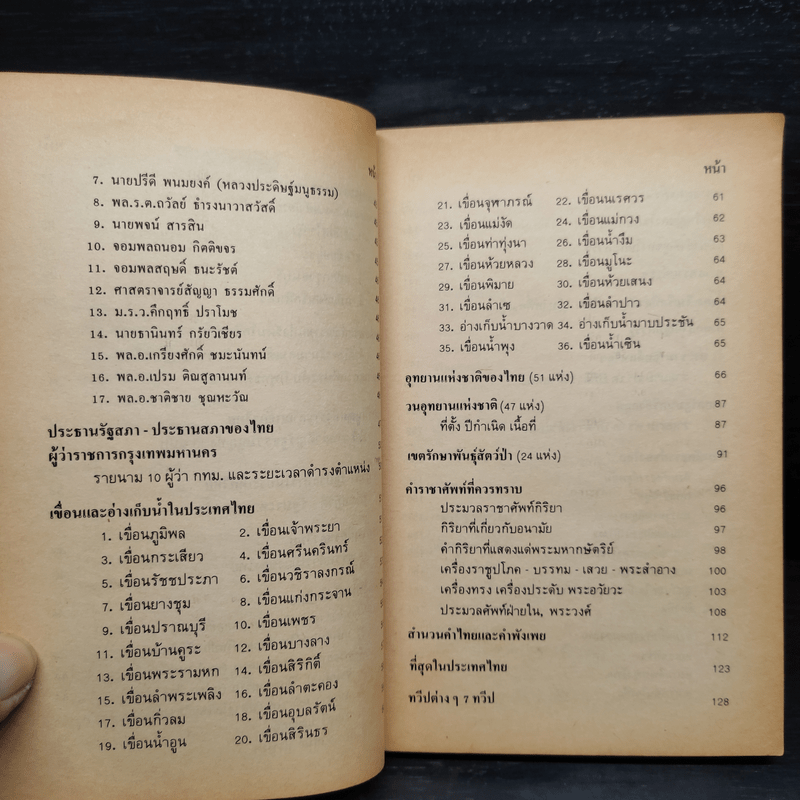 7. นายปรีดี พนมยงค์ (หลวงประดิษฐ์มนูธรรม)
8. พล.ร.ต.ถวัลย์ ธำรงนาวาสวัสดิ์
9. นายพจน์ สารสิน
10. จอมพลถนอม กิตติขจร
11. จอมพลสฤษดิ์ ธนะรัชต์
12. ศาสตราจารย์สัญญา ธรรมศักดิ์
13. ม.ร.ว.คึกฤทธิ์ ปราโมช
14. นายธานินทร์ กรัยวิเชียร
15. พล.อ.เกรียงศักดิ์ ชมะนันทน์
16. พล.อ.เปรม ติณสูลานนท์
17. พล.อ.ชาติชาย ชุณหะวัณ
ประธานรัฐสภา - ประธานสภาของไทย
ผู้ว่าราชการกรุงเทพมหานคร
รายนาม 10 ผู้ว่า กทม. และระยะเวลาดำรงตำแหน่ง
เขื่อนและอ่างเก็บน้ำในประเทศไทย
1. เขื่อนภูมิพล 2. เขื่อนเจ้าพระยา
3. เขื่อนกระเสียว 4. เขื่อนศรีนครินทร์
5. เขื่อนรัชชประภา 6. เขื่อนวชิราลงกรณ์
7. เขื่อนยางชุม 8. เขื่อนแก่งกระจาน
9. เขื่อนปราณบุรี 10. เขื่อนเพชร
11. เขื่อนบ้านคูระ 12. เขื่อนบางลาง
13. เขื่อนพระรามหก 14. เขื่อนสิริกิติ์
15. เขื่อนลำพระเพลิง 16. เขื่อนลำตะคอง
17. เขื่อนกิ่วลม 18. เขื่อนอุบลรัตน์
19. เขื่อนน้ำอูน 20. เขื่อนสิรินธร
หน้า
21. เขื่อนจุฬาภรณ์ 22. เขื่อนนเรศวร 61
23. เขื่อนแม่งัด 24. เขื่อนแม่กวง 62
25. เขื่อนท่าทุ่งนา 26. เขื่อนน้ำงึม 63
27. เขื่อนห้วยหลวง 28. เขื่อนมูโนะ 64
29. เขื่อนพิมาย 30. เขื่อนห้วยเสนง 64
31. เขื่อนลำเซ 32. เขื่อนลำปาว 64
33. อ่างเก็บน้ำบางวาด 34. อ่างเก็บน้ำมาบประชัน 65
35. เขื่อนน้ำพุง 36. เขื่อนน้ำเซิน 65
อุทยานแห่งชาติของไทย (51 แห่ง) 66
วนอุทยานแห่งชาติ (47 แห่ง) 87
ที่ตั้ง ปีกำเนิด เนื้อที่ 87
เขตรักษาพันธุ์สัตว์ป่า (24 แห่ง) 91
คำราชาศัพท์ที่ควรทราบ 96
ประมวลราชาศัพท์กิริยา 96
กิริยาที่เกี่ยวกับอนามัย 97
คำกิริยาที่แสดงแด่พระมหากษัตริย์ 98
เครื่องราชูปโภค - บรรทม - เสวย - พระสำอาง 100
เครื่องทรง เครื่องประดับ พระอวัยวะ 103
ประมวลศัพท์ฝ่ายใน, พระวงศ์ 108
สำนวนคำไทยและคำพังเพย 112
ที่สุดในประเทศไทย 123
ทวีปต่าง ๆ 7 ทวีป 128